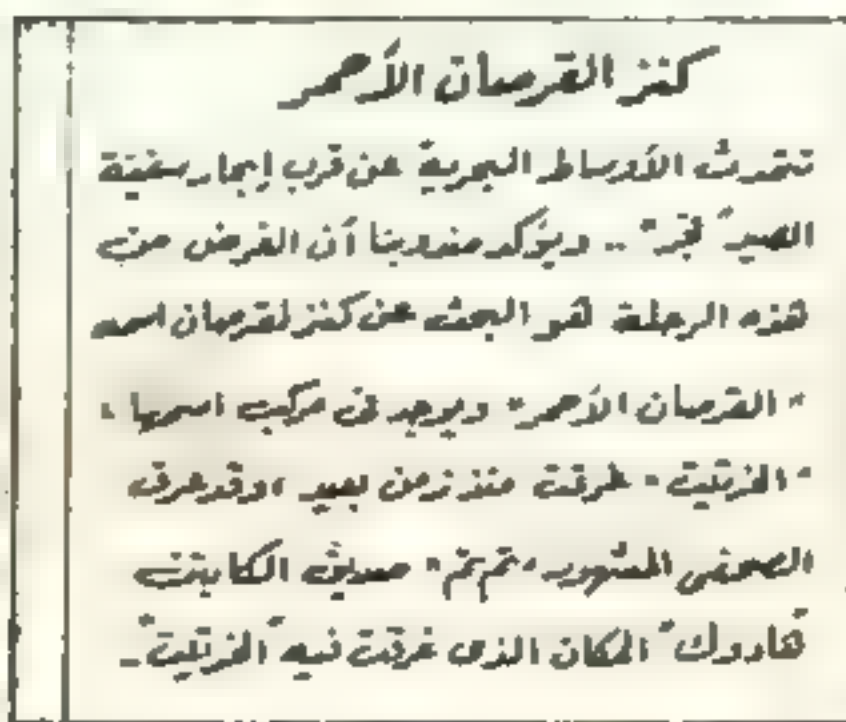 كنز القرصان الأحمر
تتحدث الأوساط البحرية عن قرب إبحار سفينة
الصيد "فجر" .. ويؤكد مندوبنا أن الغرض من
هذه الرحلة هو البحث عن كنز لقرصان اسمه
"القرصان الأحمر" ويوجد فى مركب اسمها ،
"الخرتيت" غرقت منذ زمن بعيد ، وقد عرف
الصحفى المشهور "تم تم" صديق الكابتن
"هادوك" المكان الذى غرقت فيه "الخرتيت" ـ